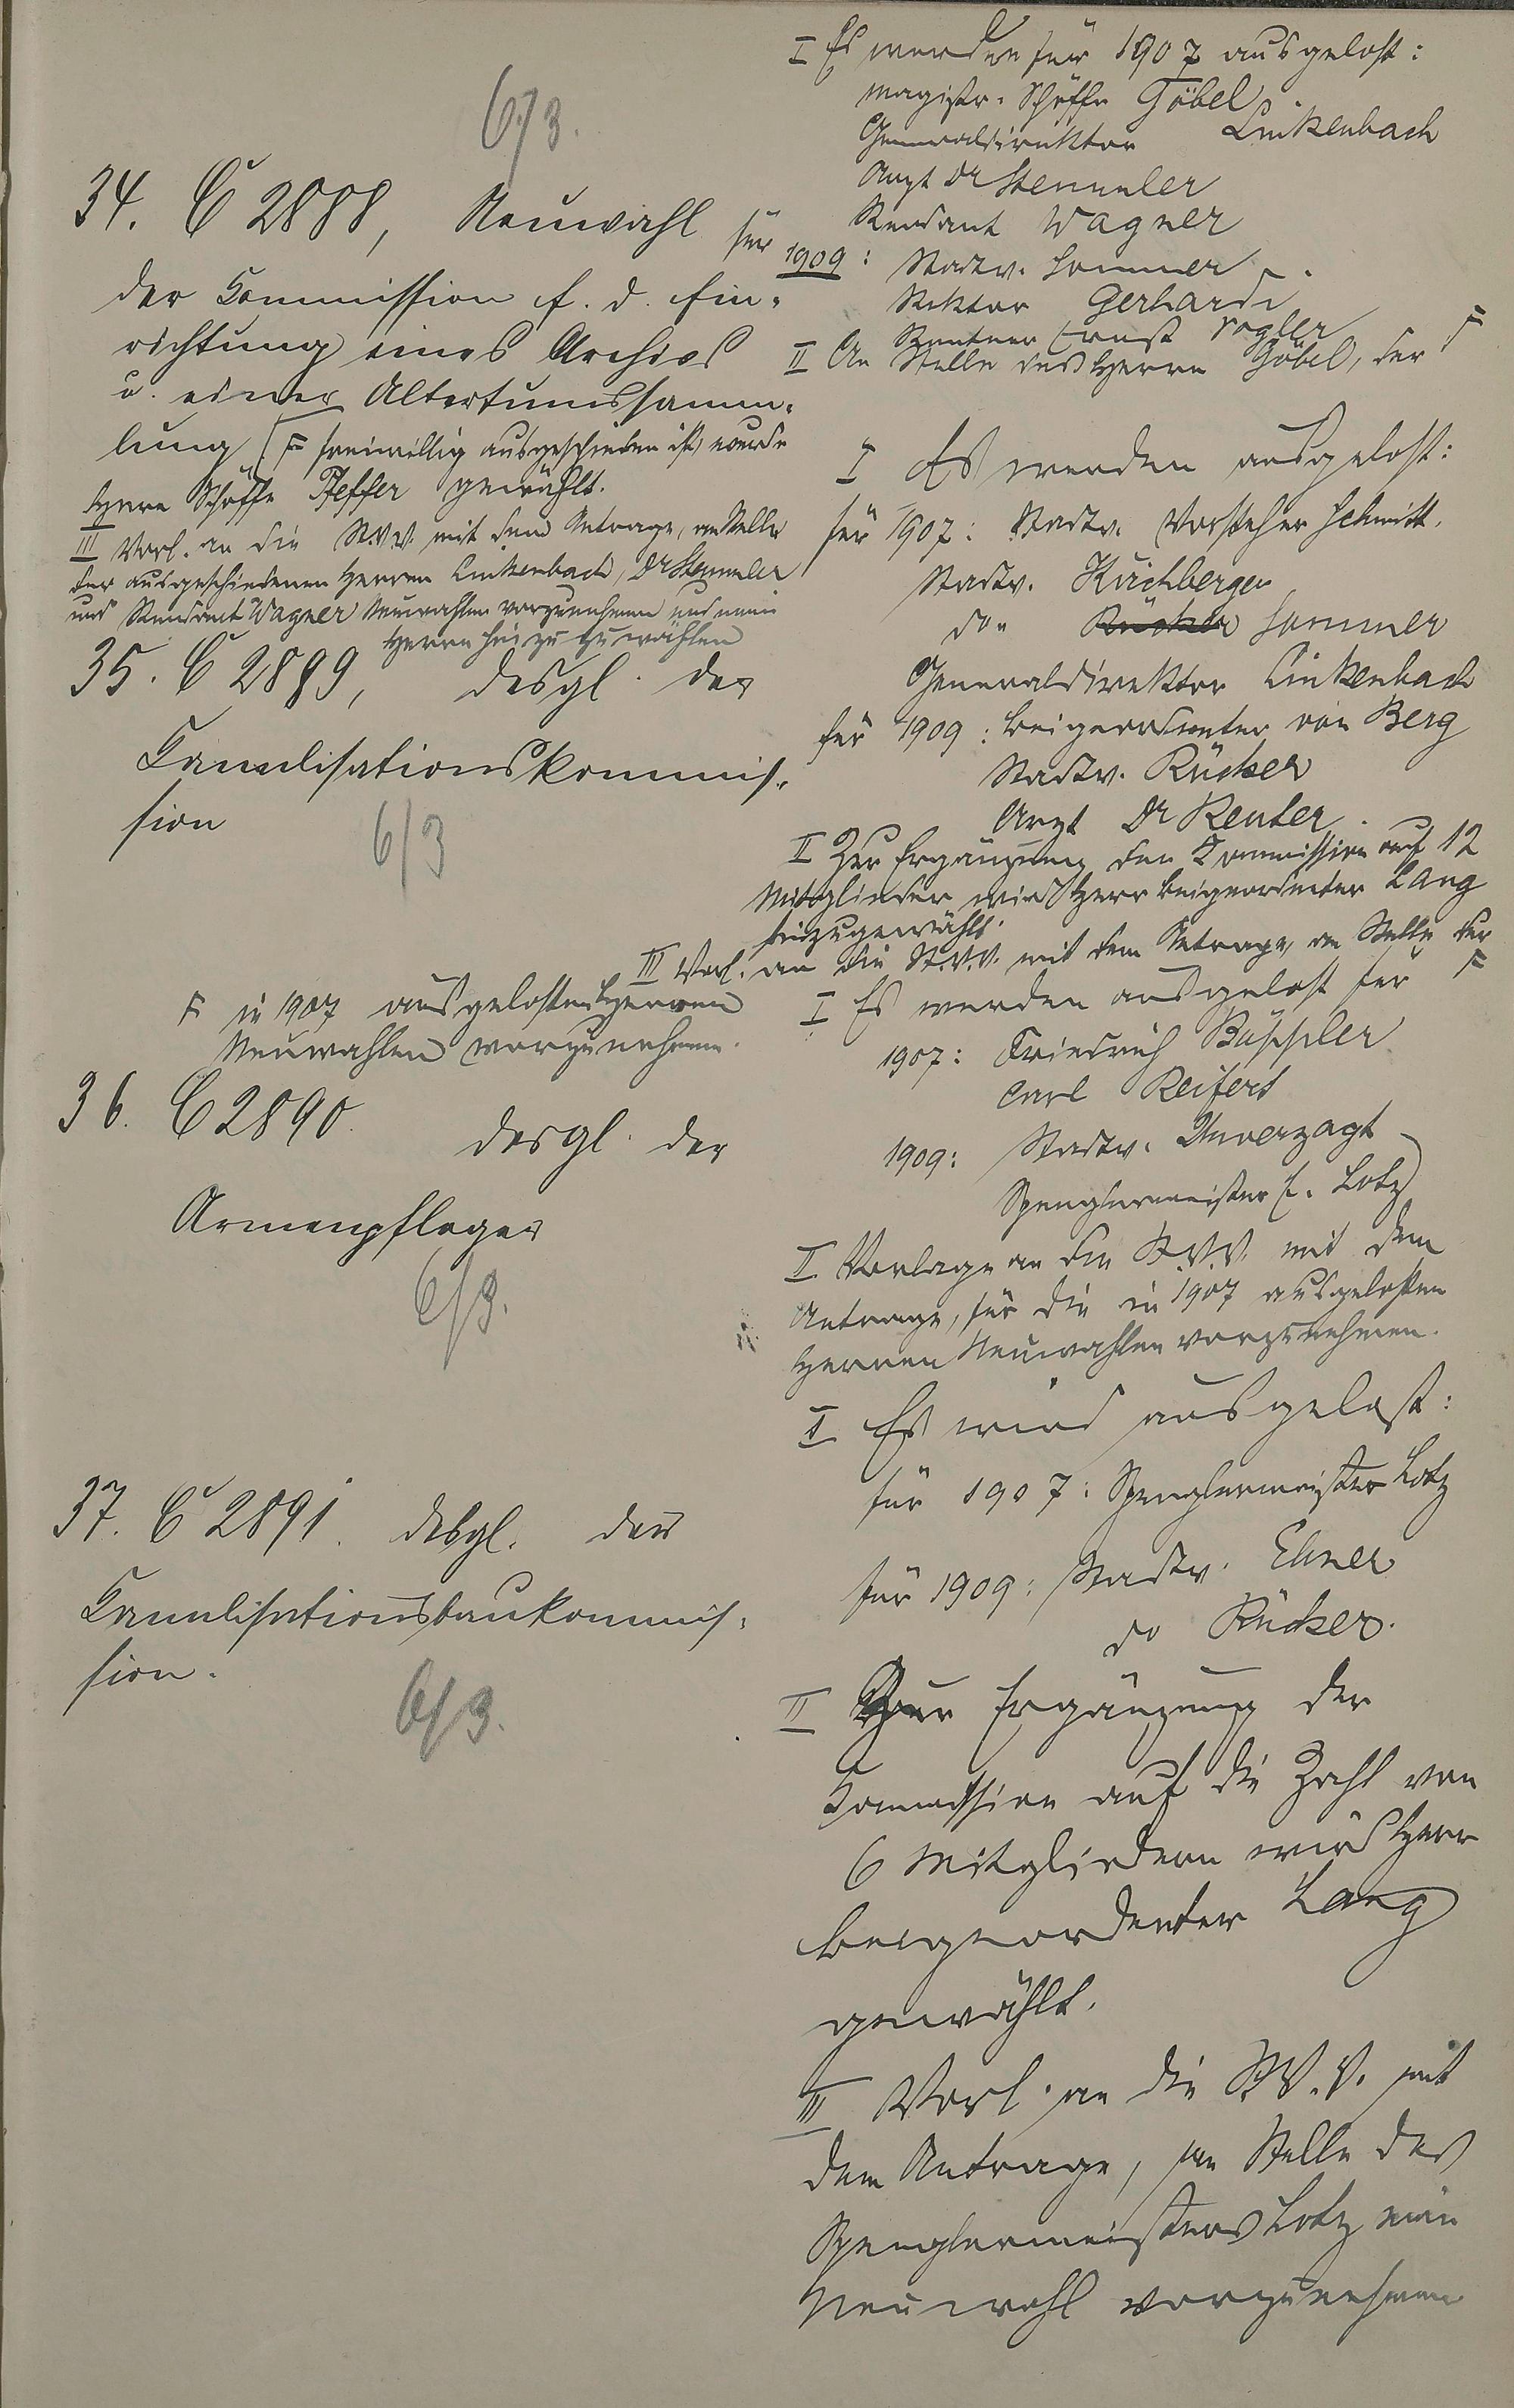 6/3.
34. C 2888, Neuwahl
der Commission f. d. Ein-
richtung eines Archivs
u. einer Altertumssamm-
lung
I Es werden für 1907 ausgelost:
Magistr. Schöffe Göbel
Generaldirektor Linkenbach
Arzt Dr Stemmler
Rendant Wagner
für 1909: Stadtv. Sommer
Rektor Gerhardi
Rentner Ernst Vogler
II An Stelle des Herrn Göbel, der F
F freiwillig ausgeschieden ist, wurde
Herr Schöffe Pfeffer gewählt.
III Vorl. an die St.V.V. mit dem Antrage, an Stelle
der ausgeschiedenen Herren Linkenbach, Dr Stemmler
und Rendant Wagner Neuwahlen vorzunehmen und einen
Herrn hinzu zu wählen
35. C 2889, desgl. der
Canalisationskommis-
sion
6/3
I Es werden ausgelost:
für 1907: Stadtv. Vorsteher Schmitt.
Stadtv. Kirchberger
do Rücker Sommer
Generaldirektor Linkenbach
für 1909: Beigeordneter von Berg
Stadtv. Rücker
Arzt Dr Reuter.
II Zur Ergänzung der Kommission auf 12
Mitglieder wird Herr Beigeordneter Lang
hinzugewählt.
III Vorl. an die St.V.V. mit dem Antrage, an Stelle der F
F in 1907 ausgelosten Herren
Neuwahlen vorzunehmen.
36. C 2890. desgl. der
Armenpfleger
6/3.
I Es werden ausgelost für
1907: Friedrich Bäppler
Carl Reifert
1909: Stadtv. Unverzagt
Spenglermeister C. Lotz
II Vorlage an die St.V.V. mit dem
Antrage, für die in 1907 ausgelosten
Herren Neuwahlen vorzunehmen.
37. C 2891. desgl. der
Canalisationsbaukommis-
sion.
6/3.
I Es wird ausgelost:
für 1907: Spenglermeister Lotz
für 1909: Stadtv. Elmer
do Rücker.
II Zur Ergänzung der
Kommission auf die Zahl von
6 Mitgliedern wird Herr
Beigeordneter Lang
gewählt.
III Vorl. an die St.V.V. mit
dem Antrage, an Stelle des
Spenglermeisters Lotz eine
Neuwahl vorzunehmen